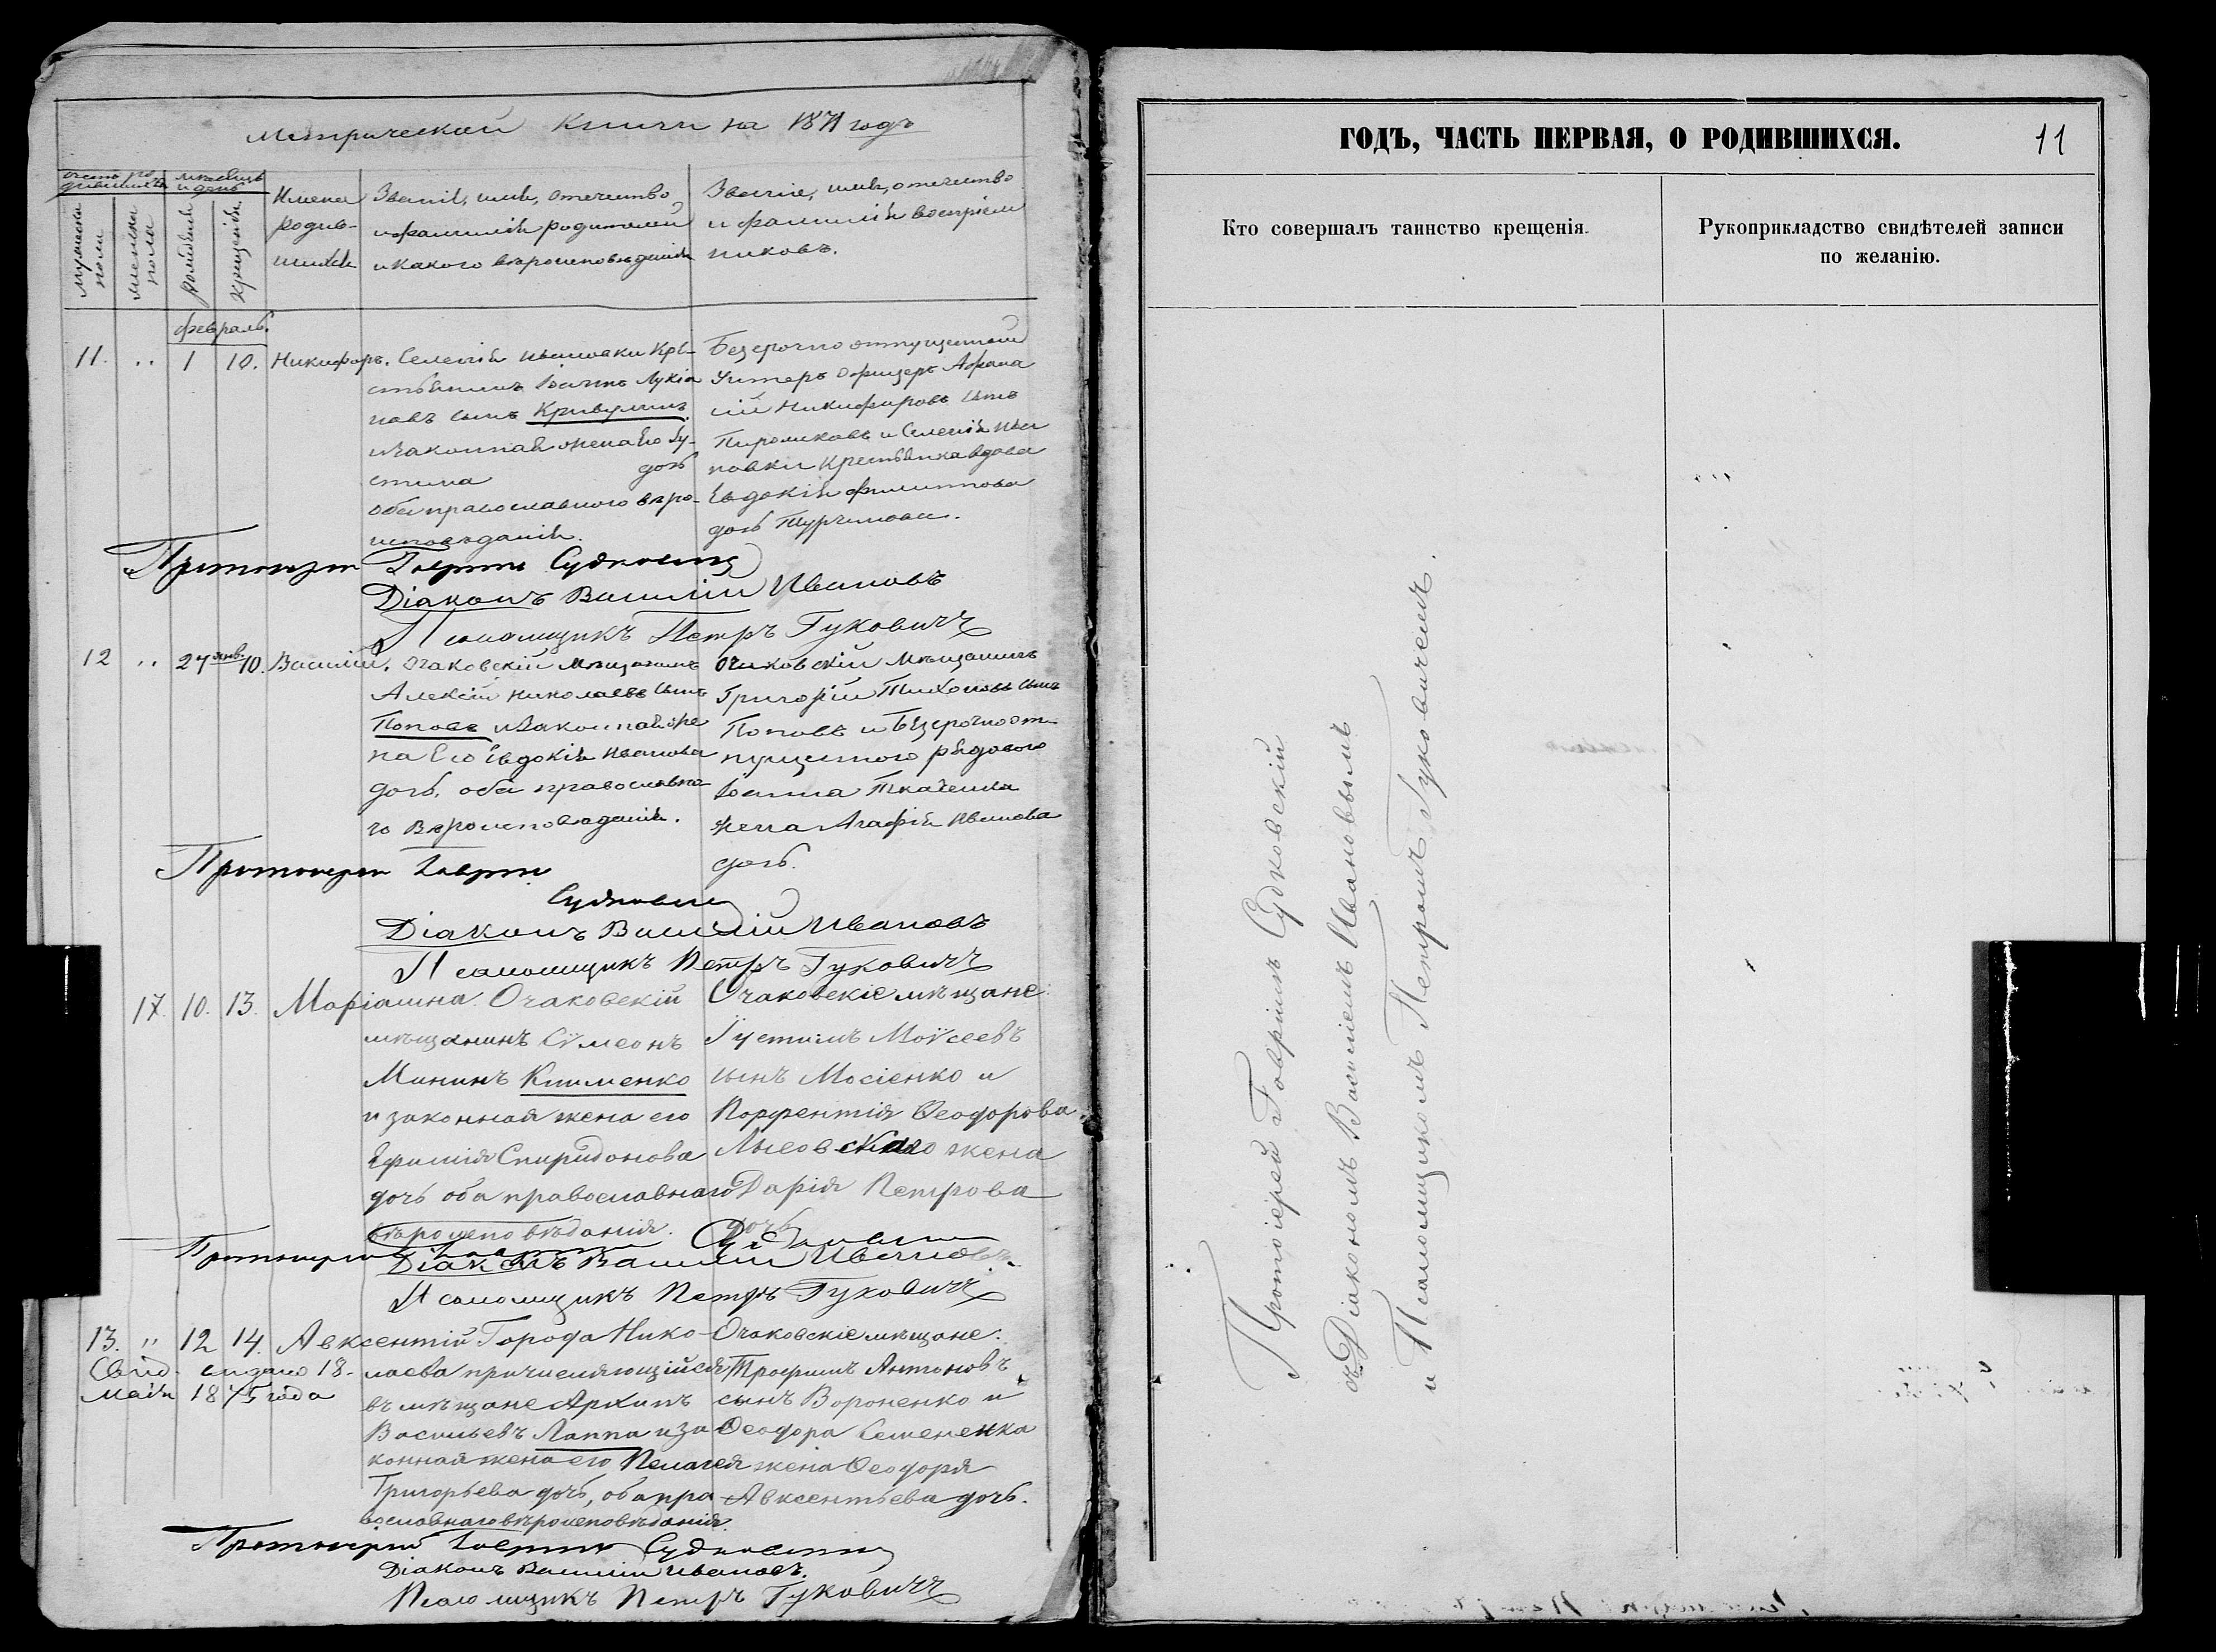 Метрической Книги на 1871 годъ
число ро-
дившихся
мѣсяцъ
и день
мужеска
пола
женска
пола
рожденія
крещенія
Имена
родив-
шихся
Званіе, имя, отчество
и фамилія родителей
и какого вѣроисповѣданія
Званіе, имя, отчество
и фамилія воспріем
никовъ.
февраль.
11. .. 1 10. Никифоръ. Селенія Ивановки Кре-
стьянинъ Іоаннъ Лукіа
новъ сынъ Кривулинъ
и законная жена его Іу-
стина дочь
оба православнаго вѣро-
исповѣданія.
Безсрочно отпущенный
Унтеръ Офицеръ Афана
сій Никифоровъ сынъ
и Селенія Ива
новки крестьянка вдова
Евдокія Филиппова
дочь Турчинова.
Протоіерей Гавріилъ Судковскій
Діаконъ Василій Ивановъ
Псаломщикъ Петръ Гуковичъ
12 .. 27 янв. 10. Василій. Очаковскій мѣщанинъ
Алексій Николаевъ сынъ
Поповъ и законная же
на его Евдокія Иванова
дочь, оба православна
го вѣроисповѣданія.
Очаковскій мѣщанинъ
Григорій Тихоновъ сынъ
Поповъ и безсрочно от
пущенного рядового
Іоанна Ткаченка
жена Агафія Иванова
дочь.
Протоіерей Гавріилъ
Судковскій
Діаконъ Василій Ивановъ
Псаломщикъ Петръ Гуковичъ
17. 10. 13. Маріамна. Очаковскій
мѣщанинъ Сѷмеонъ
Мининъ Клименко
и законная жена его
Ефимія Спиридонова
дочь оба православнаго
вѣроисповѣданія.
Очаковскіе мѣщане:
Іустинъ Моѵсеевъ
сынъ Мосіенко и
Парфентія Ѳеодорова
Лысовскаго жена
Дарія Петрова
дочь
Протоіерей Гавріилъ Судковскій
Діаконъ Василій Ивановъ.
Псаломщикъ Петръ Гуковичъ
13. ,, 12 14. Авксентій Города Нико-
лаева причисляющійся
въ мѣщане Архипъ
Васильевъ Лаппа и за
конная жена его Пелагея
Григорьева дочь, оба пра
вославнаго вѣроисповѣданія.
Очаковскіе мѣщане:
Трофимъ Антоновъ
сынъ Вороненко и
Ѳеодора Семененка
жена Ѳеодора
Авксентьева дочь.
Свид. выдано 18-
Мая 1875 года
Протоіерей Гавріилъ Судковскій
Діаконъ Василій Ивановъ.
Псаломщикъ Петръ Гуковичъ
ГОДЪ, ЧАСТЬ ПЕРВАЯ, О РОДИВШИХСЯ.
11
Кто совершалъ таинство крещенія.
Рукоприкладство свидѣтелей записи
по желанію.
Протоіерей Гавріилъ Судковскій
съ Діакономъ Василіемъ Ивановымъ
и Псаломщикомъ Петромъ Гуковичемъ.